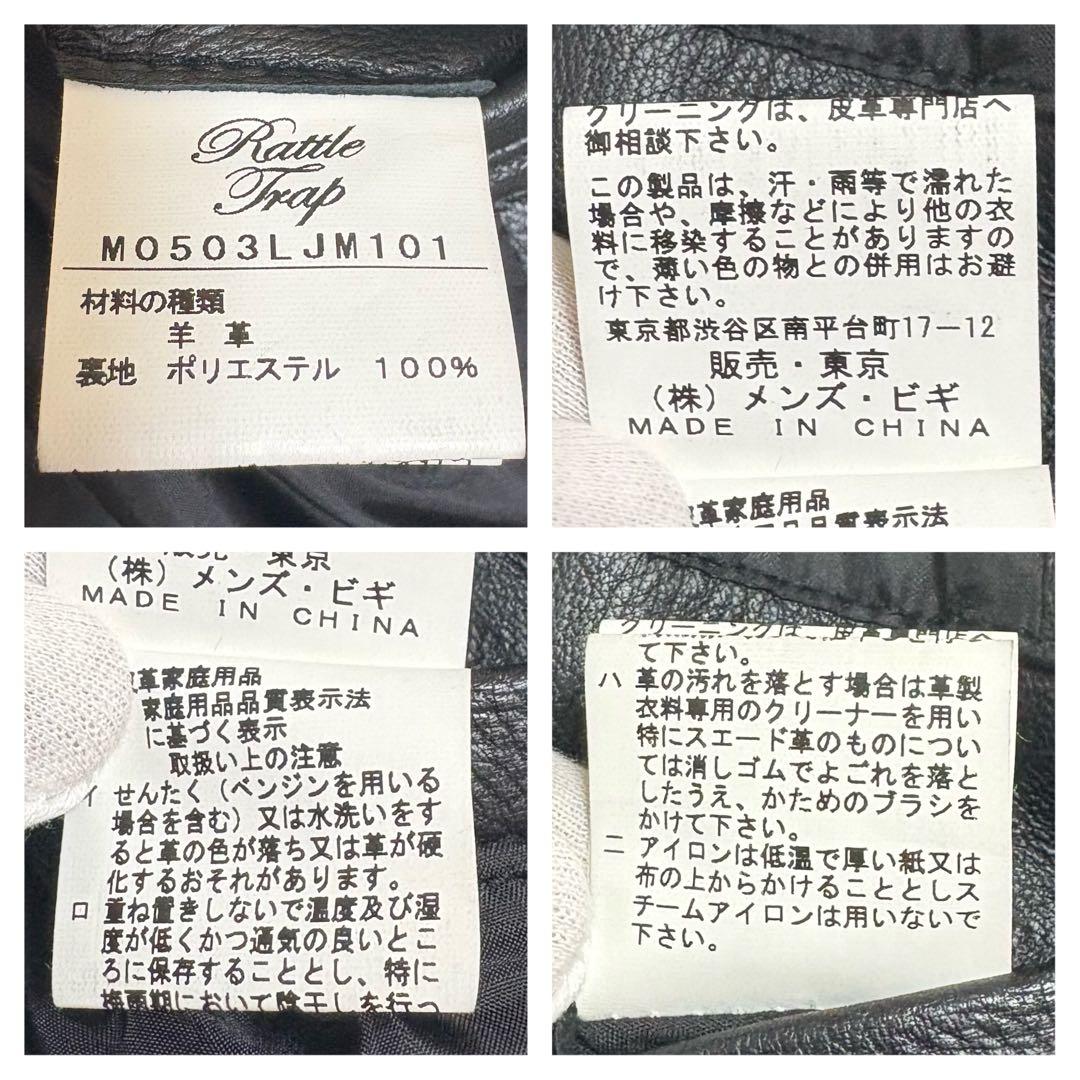 Rattle
Trap
M0503LJM101
材料の種類
羊 革
裏地 ポリエステル 100%
クリーニングは、皮革専門店へ
御相談下さい。
この製品は、汗・雨等で濡れた
場合や、摩擦などにより他の衣
料に移染することがありますの
で、薄い色の物との併用はお避
け下さい。
東京都渋谷区南平台町17-12
販売・東京
(株)メンズ・ビギ
MADE IN CHINA
革家庭用品
品質表示法
販売・東京
(株)メンズ・ビギ
MADE IN CHINA
革家庭用品
家庭用品品質表示法
に基づく表示
取扱い上の注意
イ せんたく(ベンジンを用いる
場合を含む)又は水洗いをす
ると革の色が落ち又は革が硬
化するおそれがあります。
ロ 重ね置きしないで温度及び湿
度が低くかつ通気の良いとこ
ろに保存することとし、特に
梅雨期において陰干しを行っ
クリーニングは、皮革専門店へ
て下さい。
ハ 革の汚れを落とす場合は革製
衣料専用のクリーナーを用い
特にスエード革のものについ
ては消しゴムでよごれを落と
したうえ、かためのブラシを
かけて下さい。
ニ アイロンは低温で厚い紙又は
布の上からかけることとしス
チームアイロンは用いないで
下さい。